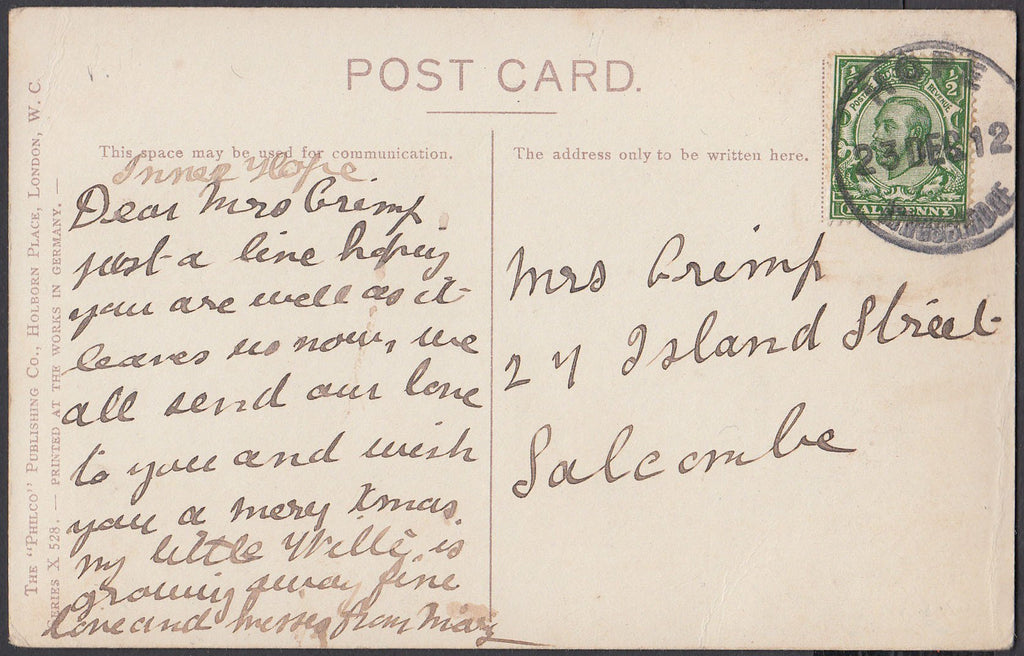 POST CARD.
This space may be used for communication.
Inner Hope
Dear Mrs Crimp
just a line hoping
you are well as it
leaves us now, we
all send our love
to you and wish
you a mery Xmas.
my little Willie is
growing away fine
love and kisses from Mary
The address only to be written here.
Mrs Crimp
27 Island Street
Salcombe
½ ½
POSTAGE REVENUE
HALFPENNY
HOPE
23 DEC 12
KINGSBRIDGE
THE "PHILCO" PUBLISHING CO., HOLBORN PLACE, LONDON, W. C.
SERIES X 528. — PRINTED AT THE WORKS IN GERMANY. —